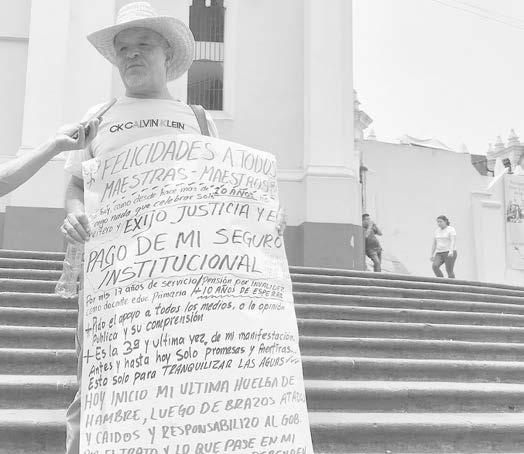 CK CALVIN KLEIN
FELICIDADES A TODOS
MAESTRAS - MAESTROS
soy como desde hace mas de 10 AÑOS
tengo nada que celebrar solo
y EXIJO JUSTICIA Y EL
PAGO DE MI SEGURO
INSTITUCIONAL
Por mis 17 años de servicio / Pensión por INVALIDEZ
como docente educ. Primaria / +10 AÑOS DE ESPERA
+ Pido el apoyo a todos los medios, a la opinión
Publica y su comprensión
+ Es la 3ª y ultima vez, de mi manifestación
Antes y hasta hoy Solo promesas y mentiras...
Esto solo para TRANQUILIZAR LAS AGUAS
HOY INICIO MI ULTIMA HUELGA DE
HAMBRE, LUEGO DE BRAZOS ATADOS
Y CAIDOS Y RESPONSABILIZO AL GOB.
POR EL TRATO Y LO QUE PASE EN MI